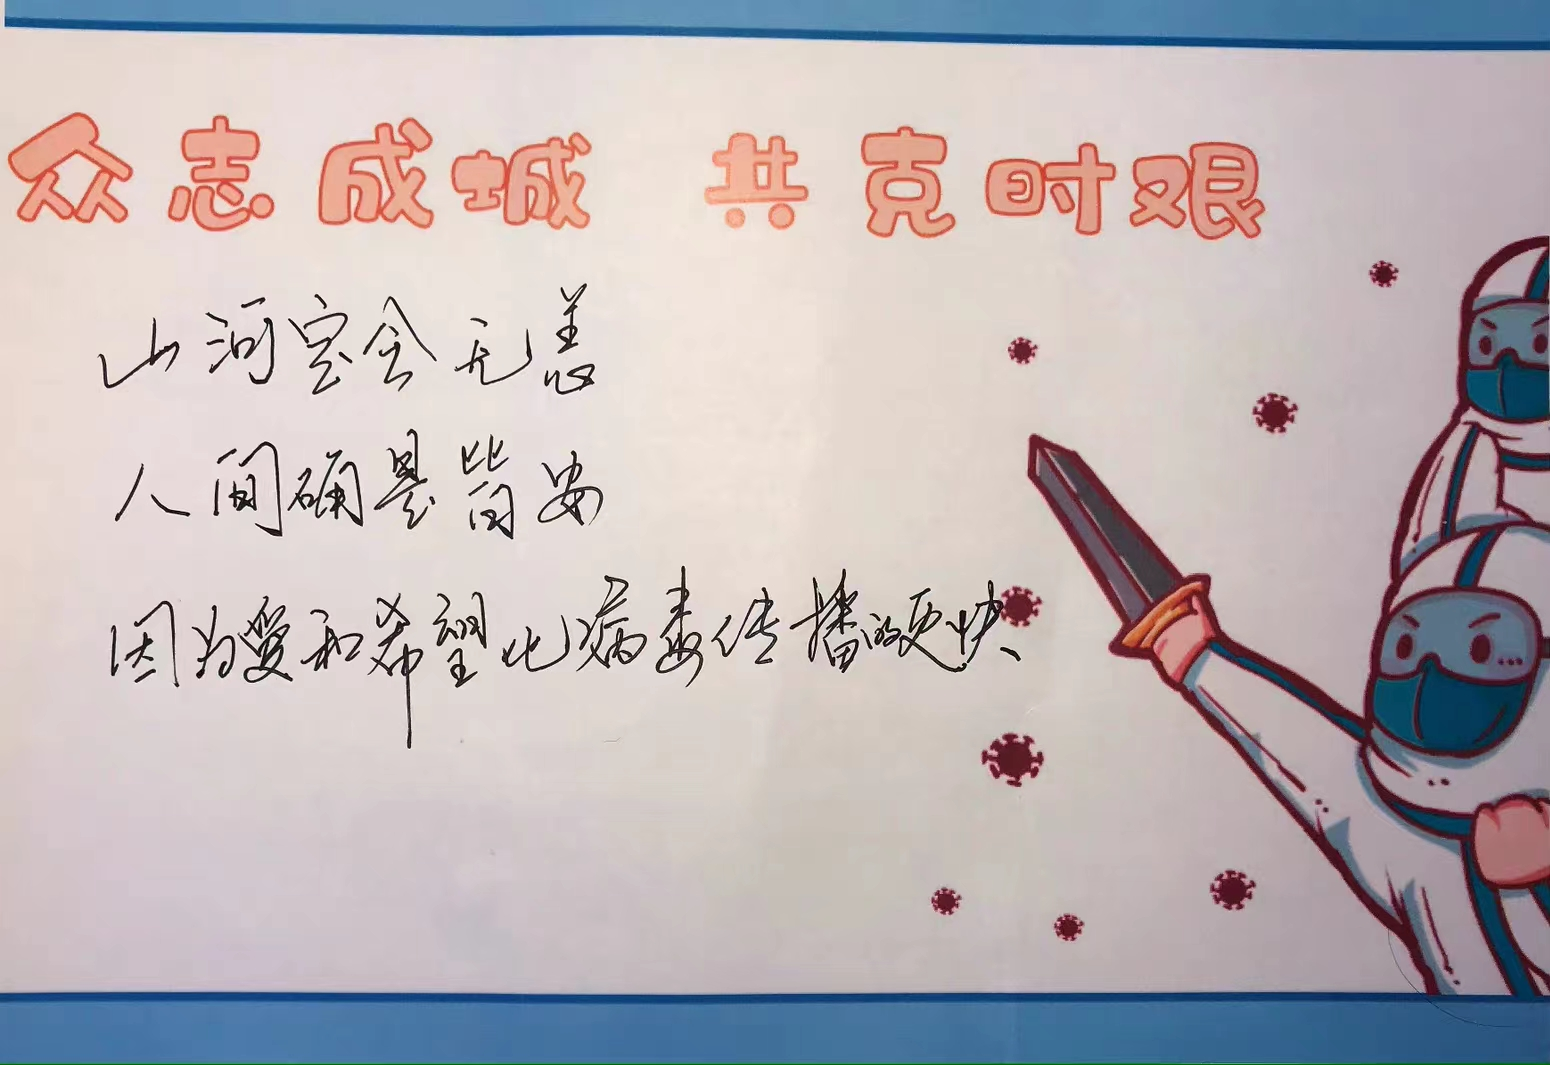 众志成城 共克时艰
山河定会无恙
人间确是皆安
因为爱和希望比病毒传播的更快